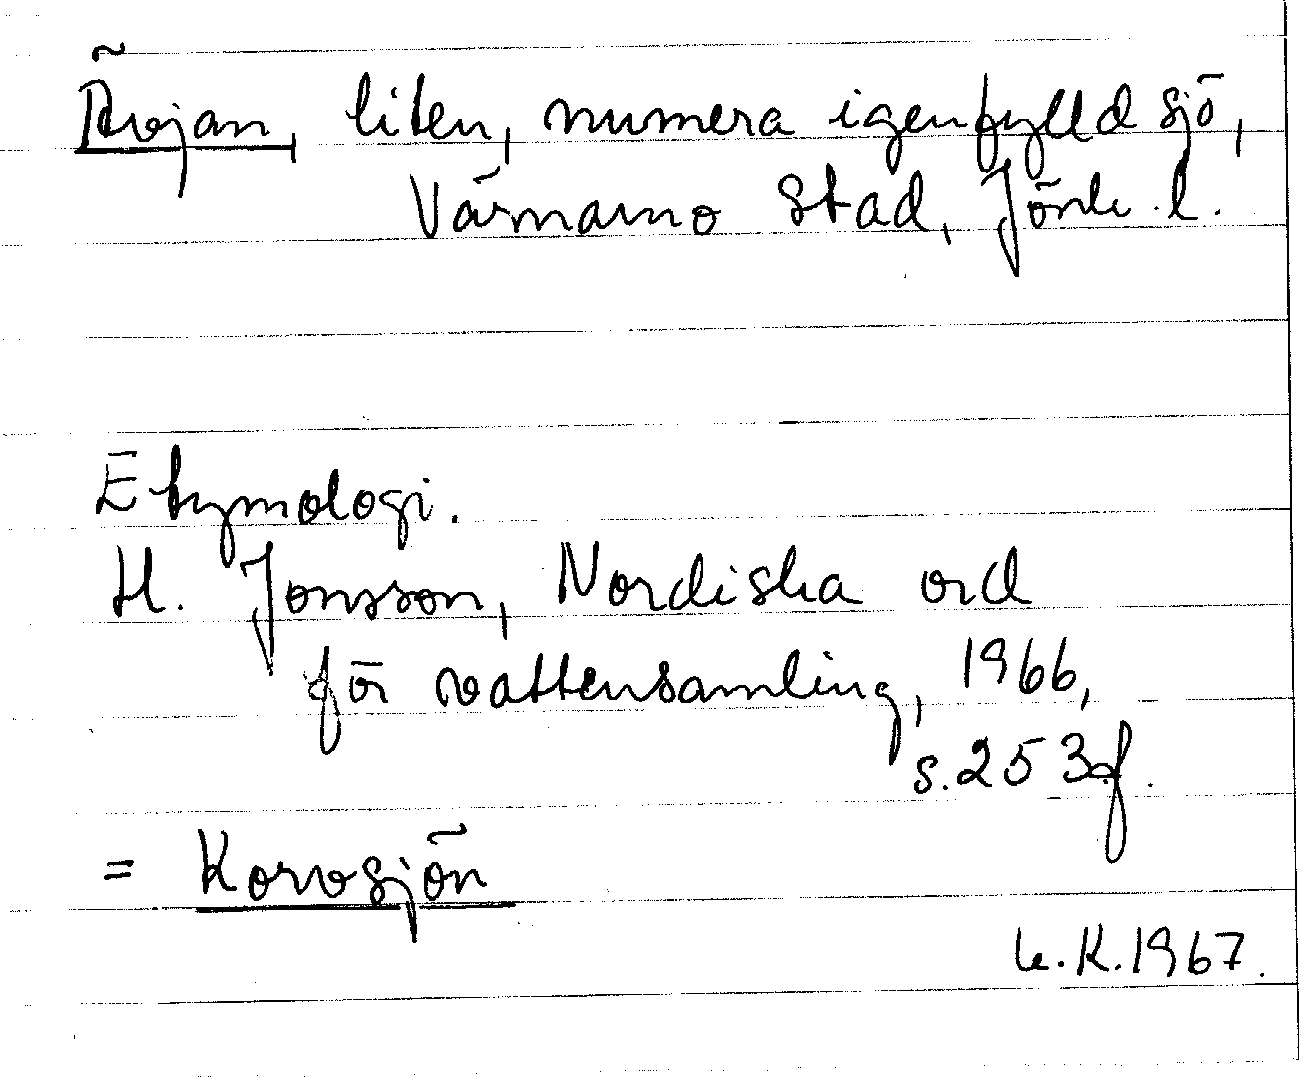 Ävjan, liten, numera igenfylld sjö,
Värnamo stad, Jönk. l.
Etymologi.
H. Jonsson, Nordiska ord
för vattensamling, 1966,
s. 253 f.
= Korvsjön
K. 1967.